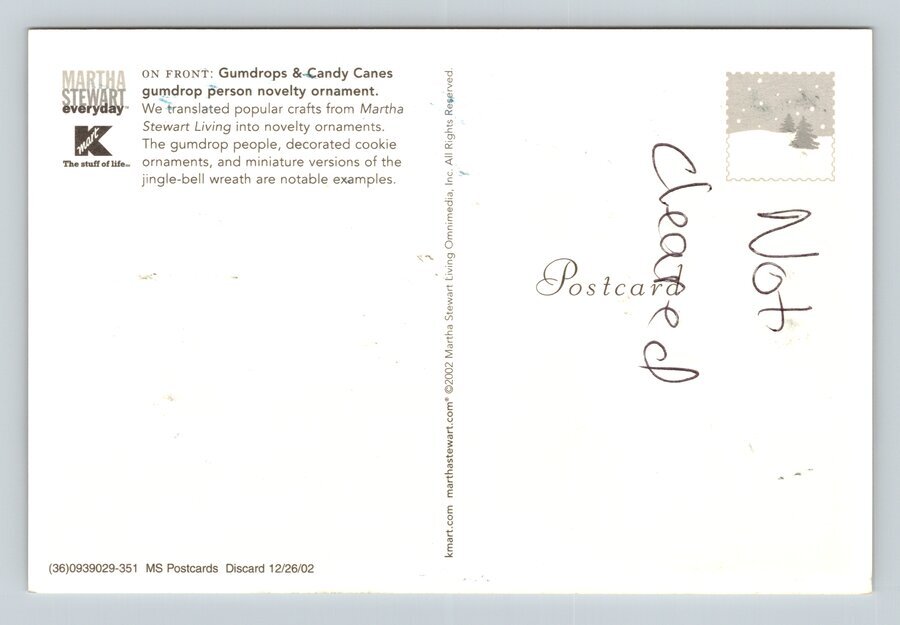 MARTHA
STEWART
everyday™
Kmart
The stuff of life℠
ON FRONT: Gumdrops & Candy Canes
gumdrop person novelty ornament.
We translated popular crafts from Martha
Stewart Living into novelty ornaments.
The gumdrop people, decorated cookie
ornaments, and miniature versions of the
jingle-bell wreath are notable examples.
(36)0939029-351 MS Postcards Discard 12/26/02
kmart.com marthastewart.com® ©2002 Martha Stewart Living Omnimedia, Inc. All Rights Reserved.
Postcard
Not
cleared